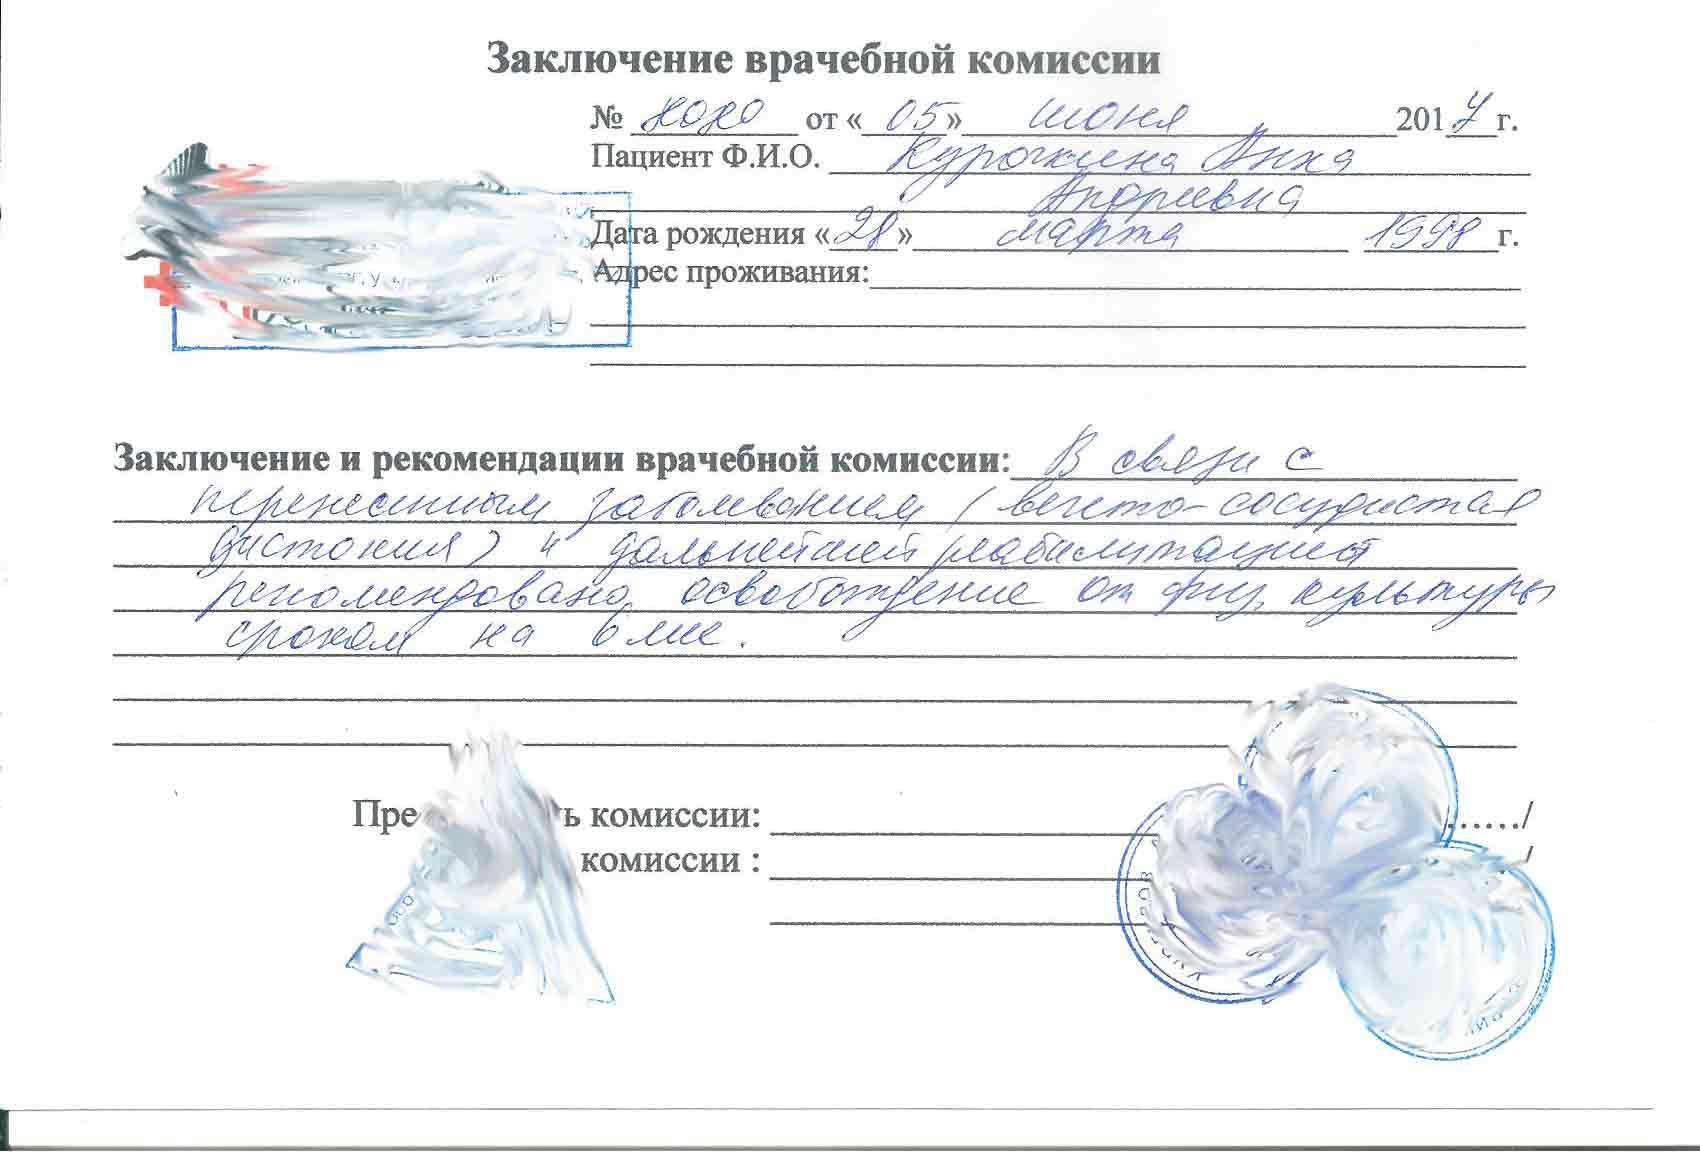 Заключение врачебной комиссии
№ 8080 от «05» июня 2017 г.
Пациент Ф.И.О. Курочкина Анна
Андреевна
Дата рождения «28» марта 1998 г.
Адрес проживания:
Заключение и рекомендации врачебной комиссии: В связи с
перенесенным заболеванием (вегето-сосудистая
дистония) и дальнейшей реабилитацией
рекомендовано освобождение от физ. культуры
сроком на 6 мес.
комиссии: ....../
комиссии : /